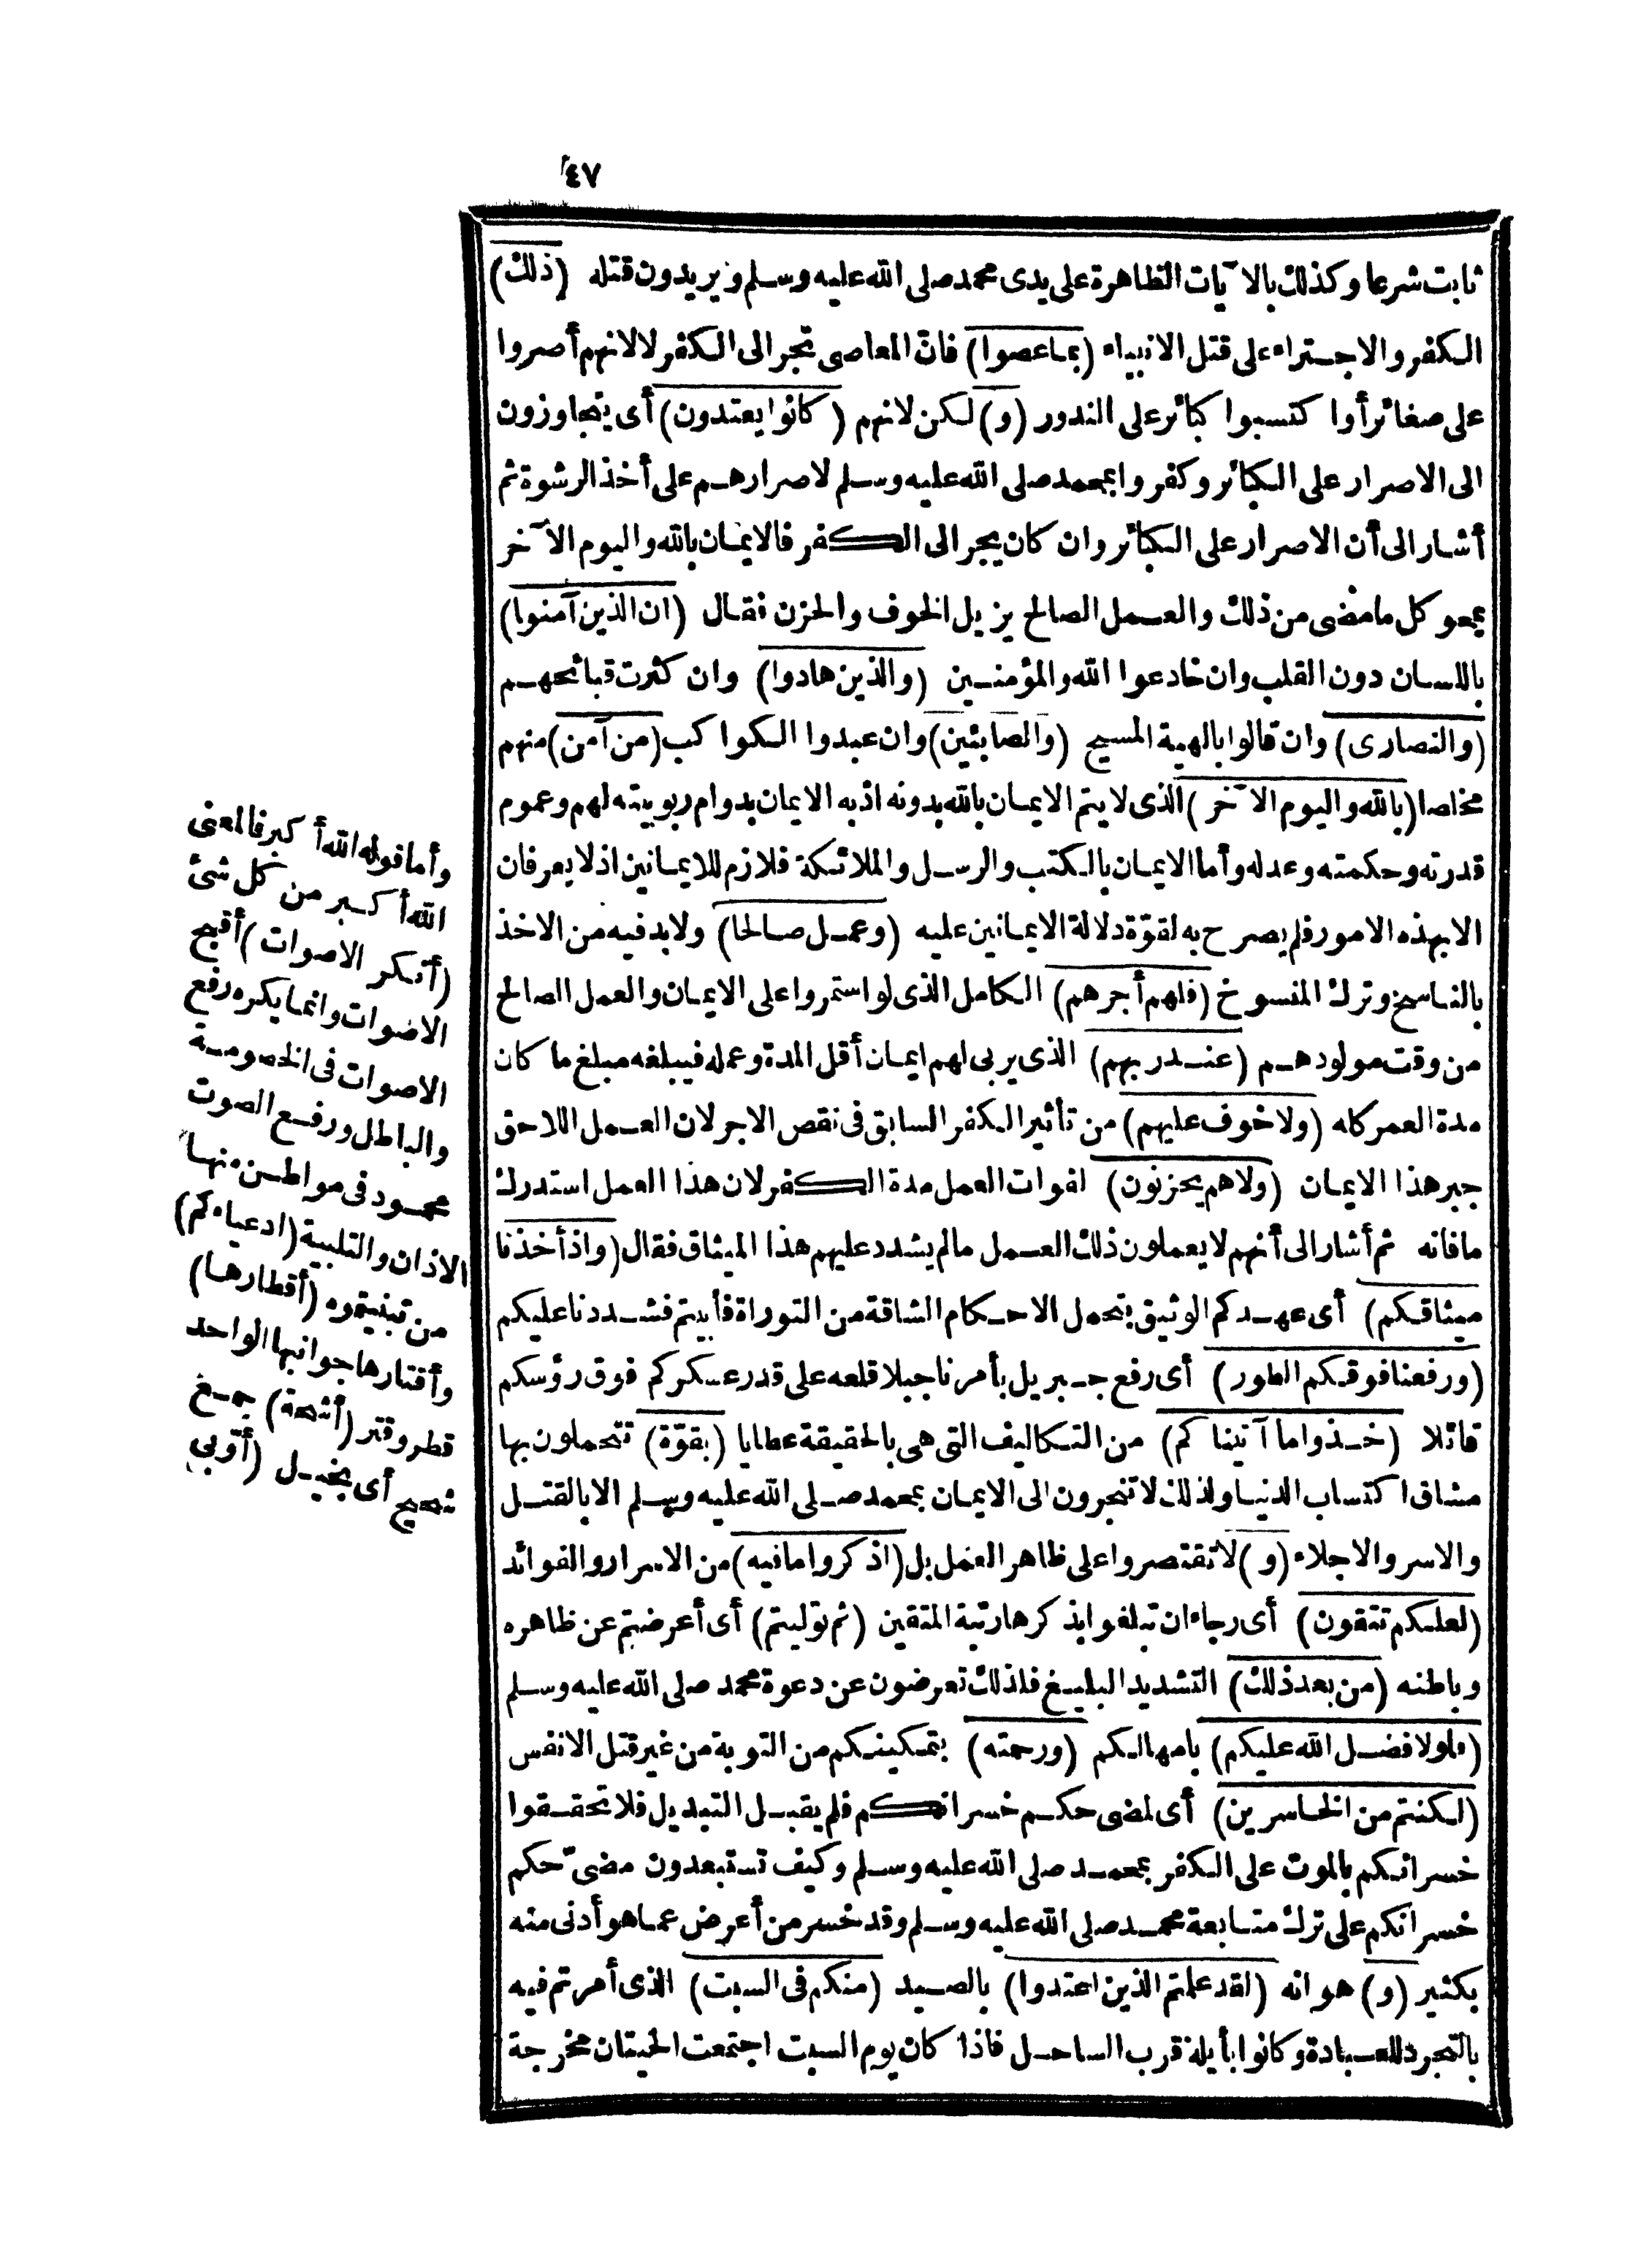 ٤٧
ثابت شرعا وكذلك بالآيات الظاهرة على يدى محمد صلى الله عليه وسلم ويريدون قتله (ذلك)
الكفر والاجتراء على قتل الانبياء (بما عصوا) فان المعاصى تجر الى الكفر لا لانهم أصروا
على صغائر أوا كتسبوا كبائر على الندور (و) لكن لانهم (كانوا يعتدون) أى يتجاوزون
الى الاصرار على الكبائر وكفروا بمحمد صلى الله عليه وسلم لاصرارهم على أخذ الرشوة ثم
أشار الى أن الاصرار على الكبائر وان كان يجر الى الكفر فالايمان بالله واليوم الآخر
يمحو كل ما مضى من ذلك والعمل الصالح يزيل الخوف والحزن فقال (ان الذين آمنوا)
باللسان دون القلب وان خادعوا الله والمؤمنين (والذين هادوا) وان كثرت قبائحهم
(والنصارى) وان قالوا بالهية المسيح (والصابئين) وان عبدوا الكواكب (من آمن) منهم
مخلصا (بالله واليوم الآخر) الذى لا يتم الايمان بالله بدونه اذ به الايمان بدوام ربوبيته لهم وعموم
قدرته وحكمته وعدله وأما الايمان بالكتب والرسل والملائكة فلازم للايمانين اذ لا يعرفان
الا بهذه الامور فلم يصرح به لقوّة دلالة الايمانين عليه (وعمل صالحا) ولابد فيه من الاخذ
بالناسخ وترك المنسوخ (فلهم أجرهم) الكامل الذى لو استمروا على الايمان والعمل الصالح
من وقت مولودهم (عند ربهم) الذى يربى لهم ايمان أقل المدة وعمله فيبلغه مبلغ ما كان
مدة العمر كله (ولا خوف عليهم) من تأثير الكفر السابق فى نقص الاجر لان العمل اللاحق
جبر هذا الايمان (ولا هم يحزنون) لفوات العمل مدة الكفر لان هذا العمل استدرك
ما فاته ثم أشار الى أنهم لا يعملون ذلك العمل مالم يشدد عليهم هذا الميثاق فقال (واذ أخذنا
ميثاقكم) أى عهدكم الوثيق بتحمل الاحكام الشاقة من التوراة فأبيتم فشددنا عليكم
(ورفعنا فوقكم الطور) أى رفع جبريل بأمرنا جبلا قلعه على قدر عسكركم فوق رؤسكم
قائلا (خذوا ما آتيناكم) من التكاليف التى هى بالحقيقة عطايا (بقوّة) تتحملون بها
مشاق اكتساب الدنيا ولذلك لا تنجرون الى الايمان بمحمد صلى الله عليه وسلم الا بالقتل
والاسر والاجلاء (و) لا تقتصروا على ظاهر العمل بل (اذكروا ما فيه) من الاسرار والفوائد
(لعلكم تتقون) أى رجاء ان تبلغوا بذكرها رتبة المتقين (ثم توليتم) أى أعرضتم عن ظاهره
وباطنه (من بعد ذلك) التشديد البليغ فلذلك تعرضون عن دعوة محمد صلى الله عليه وسلم
(فلولا فضل الله عليكم) بامهالكم (ورحمته) بتمكينكم من التوبة من غير قتل الانفس
(لكنتم من الخاسرين) أى لمضى حكم خسرانكم فلم يقبل التبديل فلا تحققوا
خسرانكم بالموت على الكفر بمحمد صلى الله عليه وسلم وكيف تستبعدون مضىّ حكم
خسرانكم على ترك متابعة محمد صلى الله عليه وسلم وقد خسر من أعرض عما هو أدنى منه
بكثير (و) هو انه (لقد علمتم الذين اعتدوا) بالصيد (منكم فى السبت) الذى أمرتم فيه
بالتجرد للعبادة وكانوا بأيلة قرب الساحل فاذا كان يوم السبت اجتمعت الحيتان مخرجة
وأما قوله الله أكبر فالمعنى
الله أكبر من كل شئ
(أنكر الاصوات) أقبح
الاصوات وانما يكره رفع
الاصوات فى الخصومة
والباطل ورفع الصوت
محمود فى مواطن منها
الاذان والتلبية (ادعياءكم)
من تبنيتموه (أقطارها)
وأقتارها جوانبها الواحد
قطر وقتر (أشحة) جمع
شحيح أى بخيل (أوّبى